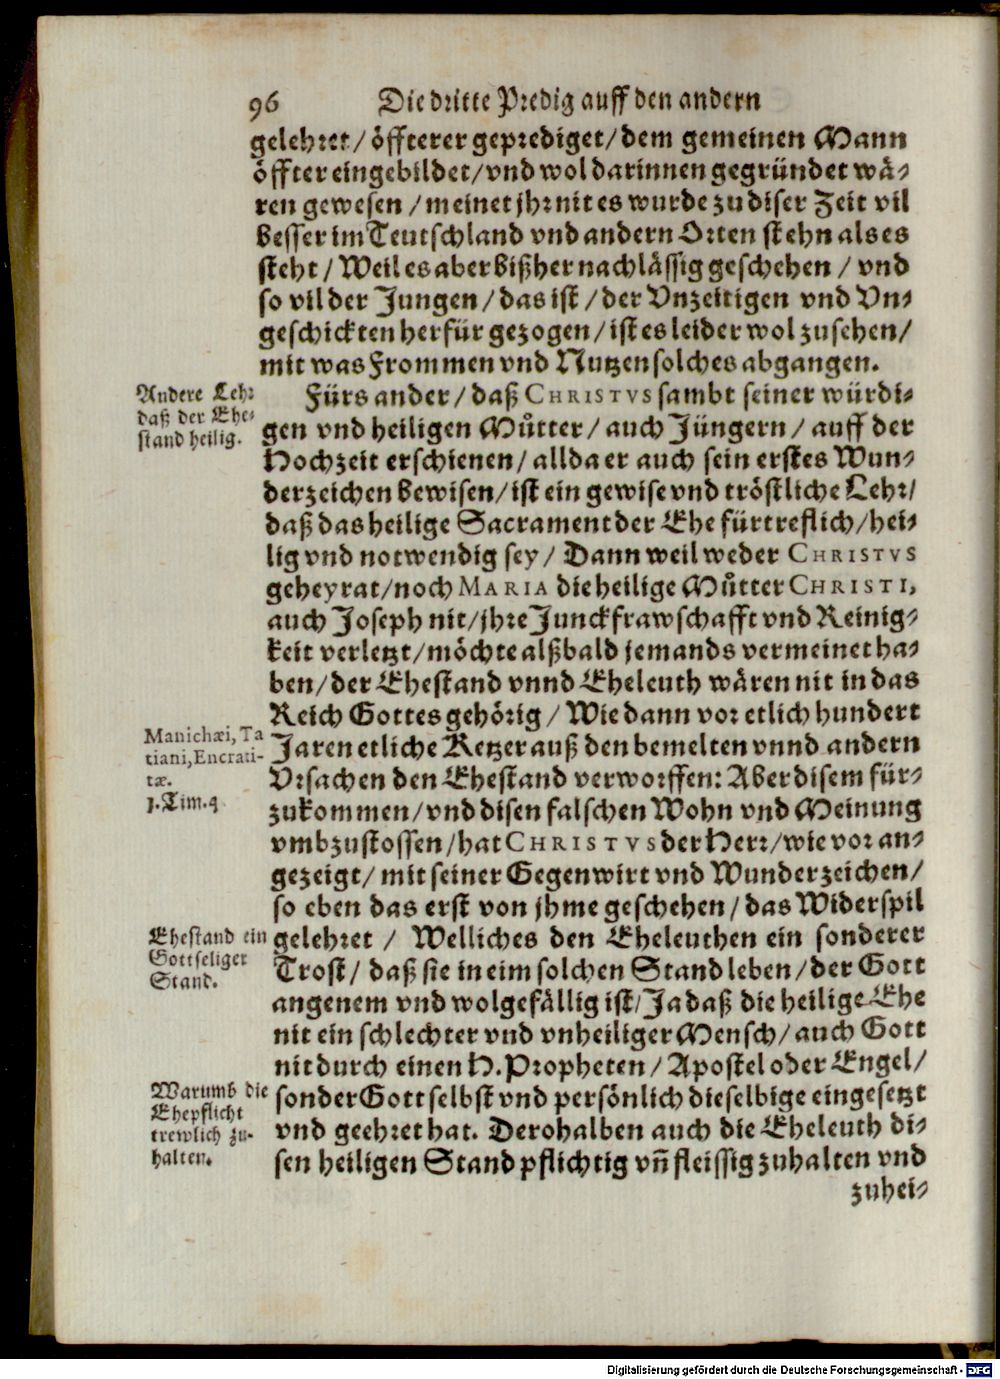 96 Die dritte Predig auff den andern
gelehret / öffterer geprediget / dem gemeinen Mann
öffter eingebildet / vnd wol darinnen gegründet wä-
ren gewesen / meinet jhr nit es wurde zu diser Zeit vil
besser im Teutschland vnd andern Orten stehn als es
steht / Weil es aber bißher nachlässig geschehen / vnd
so vil der Jungen / das ist / der Vnzeitigen vnd Vn-
geschickten herfür gezogen / ist es leider wol zusehen /
mit was Frommen vnd Nutzen solches abgangen.
Andere Lehr
daß der Ehe-
stand heilig.
Fürs ander / daß CHRISTVS sambt seiner würdi-
gen vnd heiligen Můtter / auch Jüngern / auff der
Hochzeit erschienen / allda er auch sein erstes Wun-
derzeichen bewisen / ist ein gewise vnd tröstliche Lehr /
daß das heilige Sacrament der Ehe fürtreflich / hei-
lig vnd notwendig sey / Dann weil weder CHRISTVS
geheyrat / noch MARIA die heilige Můtter CHRISTI,
auch Joseph nit / jhre Junckfrawschafft vnd Reinig-
keit verletzt / möchte alßbald jemands vermeinet ha-
ben / der Ehestand vnnd Eheleuth wären nit in das
Reich Gottes gehörig / Wie dann vor etlich hundert
Manichæi, Ta
tiani, Encrati-
tæ.
1. Tim. 4
Jaren etliche Ketzer auß den bemelten vnnd andern
Vrsachen den Ehestand verworffen: Aber disem für-
zukommen / vnd disen falschen Wohn vnd Meinung
vmbzustossen / hat CHRISTVS der Herr / wie vor an-
gezeigt / mit seiner Gegenwirt vnd Wunderzeichen /
so eben das erst von jhme geschehen / das Widerspil
Ehestand ein
Gottseliger
Stand.
gelehret / Welliches den Eheleuthen ein sonderer
Trost / daß sie in eim solchen Stand leben / der Gott
angenem vnd wolgefällig ist / Ja daß die heilige Ehe
nit ein schlechter vnd vnheiliger Mensch / auch Gott
nit durch einen H. Propheten / Apostel oder Engel /
Warumb die
Ehepflicht
trewlich zu-
halten.
sonder Gott selbst vnd persönlich dieselbige eingesetzt
vnd geehret hat. Derohalben auch die Eheleuth di-
sen heiligen Stand pflichtig vñ fleissig zuhalten vnd
zuhei-
Digitalisierung gefördert durch die Deutsche Forschungsgemeinschaft - DFG